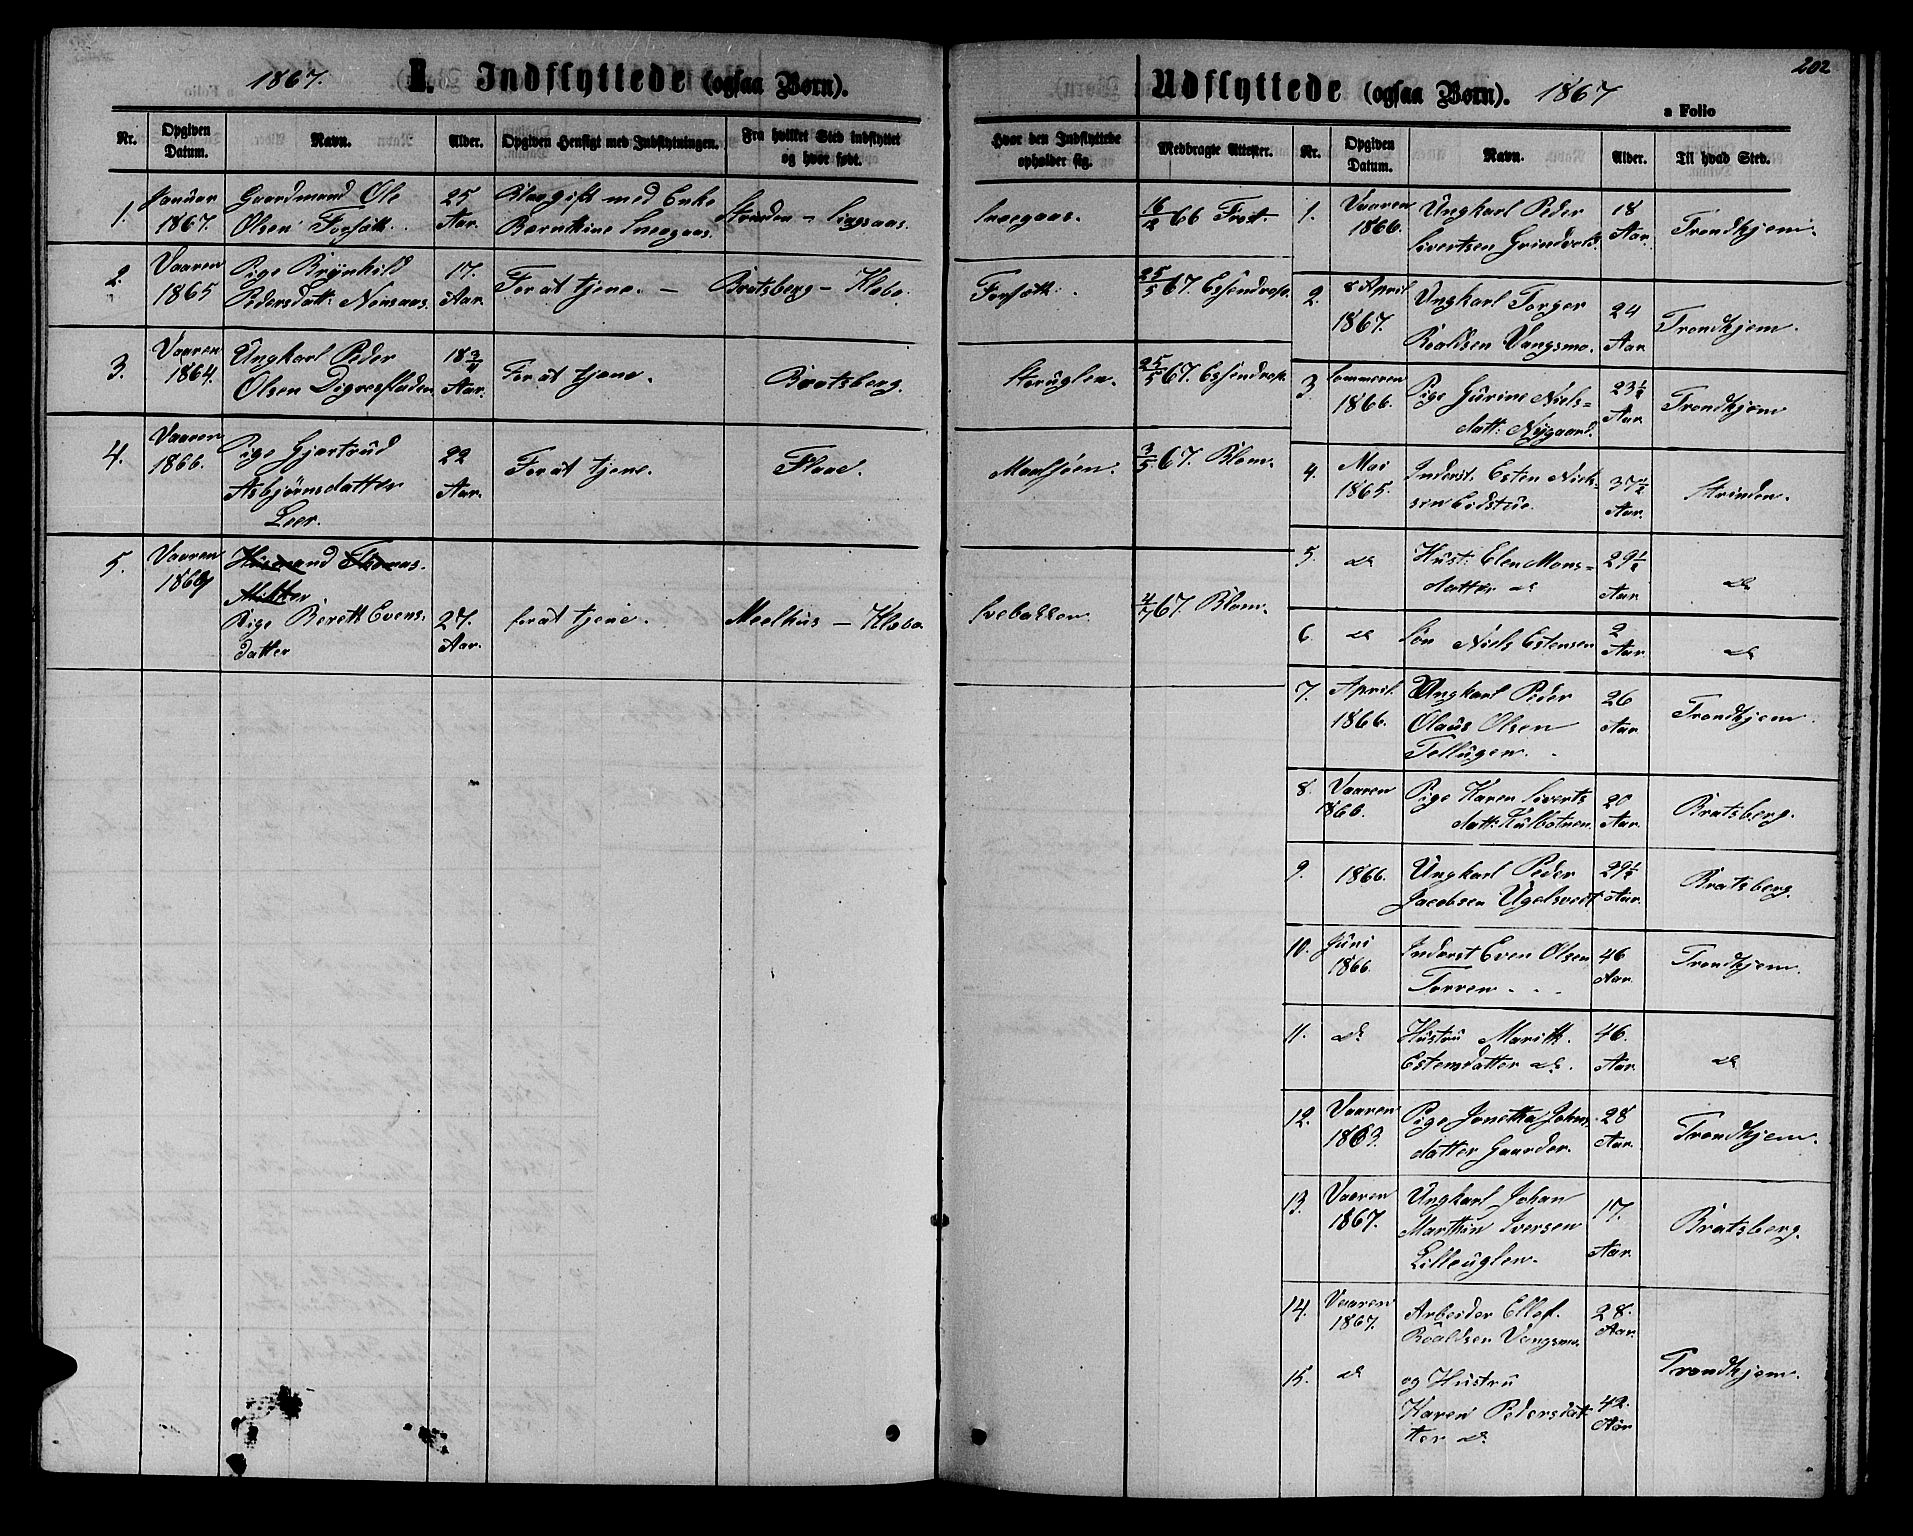 1867. I. Indflyttede (ogsaa Børn).
Nr. Opgiven Datum. Navn. Alder. Opgiven Hensigt med Indflytningen. Fra hvilket Sted indflyttet og hvor født.
1. Januar Gaardmand Ole 25
1867. Olsen Forsæth. Aar. med Enke Strinden
2. Vaaren Pige Brynhild 17.
1865 Pedersdatt: Aar. For at tjene. Bratsberg – Klæbo.
3. Vaaren Ungkarl Peder 18 3/4
1864. Olsen Aar. For at tjene. Bratsberg.
4. Vaaren Pige Gjertrud 22
1866. Asbjørnsdatter Aar. For at tjene. Flaae.
Leer.
5. Vaaren Huusmand Thomas
Pige Berett Evens- 27.
datter Aar. for at tjene. Meelhus – Klæbo
Udflyttede (ogsaa Børn). 1867
202
a Folio
Hvor den Indflyttede opholder sig. Medbragte Attester. Nr. Opgiven Datum. Navn. Alder. Til hvad Sted.
16/2 66 Frost.
Forsæth. 25/5 67. Essendrop.
Storuglen. 25/5 67. Essendrop.
3/5 67. Blom.
4/7 67. Blom.
1. Vaaren Ungkarl Peder 18
1866. Sivertsen Aar. Trondhjem.
2. 8 April Ungkarl Torger 24
1867. Roaldsen Vangsmo. Aar Trondhjem.
3 Sommeren Pige Gurine Niels- 23 1/2
1866. datt: Nygaard. Aar. Trondhjem
4. Mai Inderst. Esten Niels- 37 1/2
1865. sen Eidstue. Aar. Strinden.
5. do Hust: Elen Mons- 29 1/2
datter do Aar. do
6. do Søn Niels Estensen 2 Aar. do
7. April. Ungkarl Peder 26
1866. Olaus Olsen Aar. Trondhjem.
Tellugen.
8. Vaaren Pige Karen Siverts 20
1866. datt: Kulbotnen. Aar. Bratsberg.
9. 1866. Ungkarl Peder 29 1/2
Jacobsen Ugelsvedt Aar. Bratsberg.
10. Juni Inderst Even Olsen 46
1866. Torven Aar. Trondhjem.
11. do Hustru Marith 46.
Estensdatter do. Aar. do
12. Vaaren Pige Jonetta Johns- 28
1863. datter Gaarder. Aar. Trondhjem.
13. Vaaren Ungkarl Johan 17.
1867. Marthin Iversen Aar. Bratsberg.
Lilleuglen.
14. Vaaren Arbeider Ellef 28.
1867. Roaldsen Vangsmo. Aar.
Trondhjem.
15. do og Hustru
Karen Pedersdat- 42.
ter do. Aar